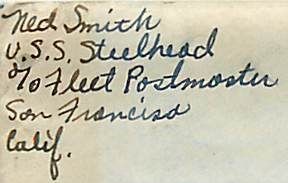 Ned Smith
U.S.S. Steelhead
c/o Fleet Postmaster
San Francisco
Calif.